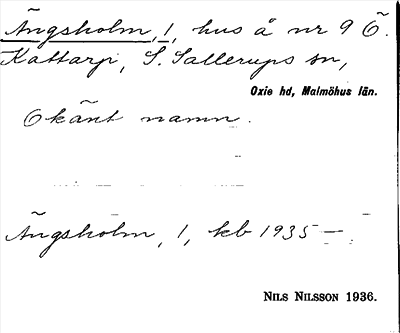 Ängsholm, 1, hus å nr 9 Ö.
Kattarp, S. Sallerups sn,
Oxie hd, Malmöhus län.
Okänt namn.
Ängsholm, 1, kb 1935 –.
NILS NILSSON 1936.